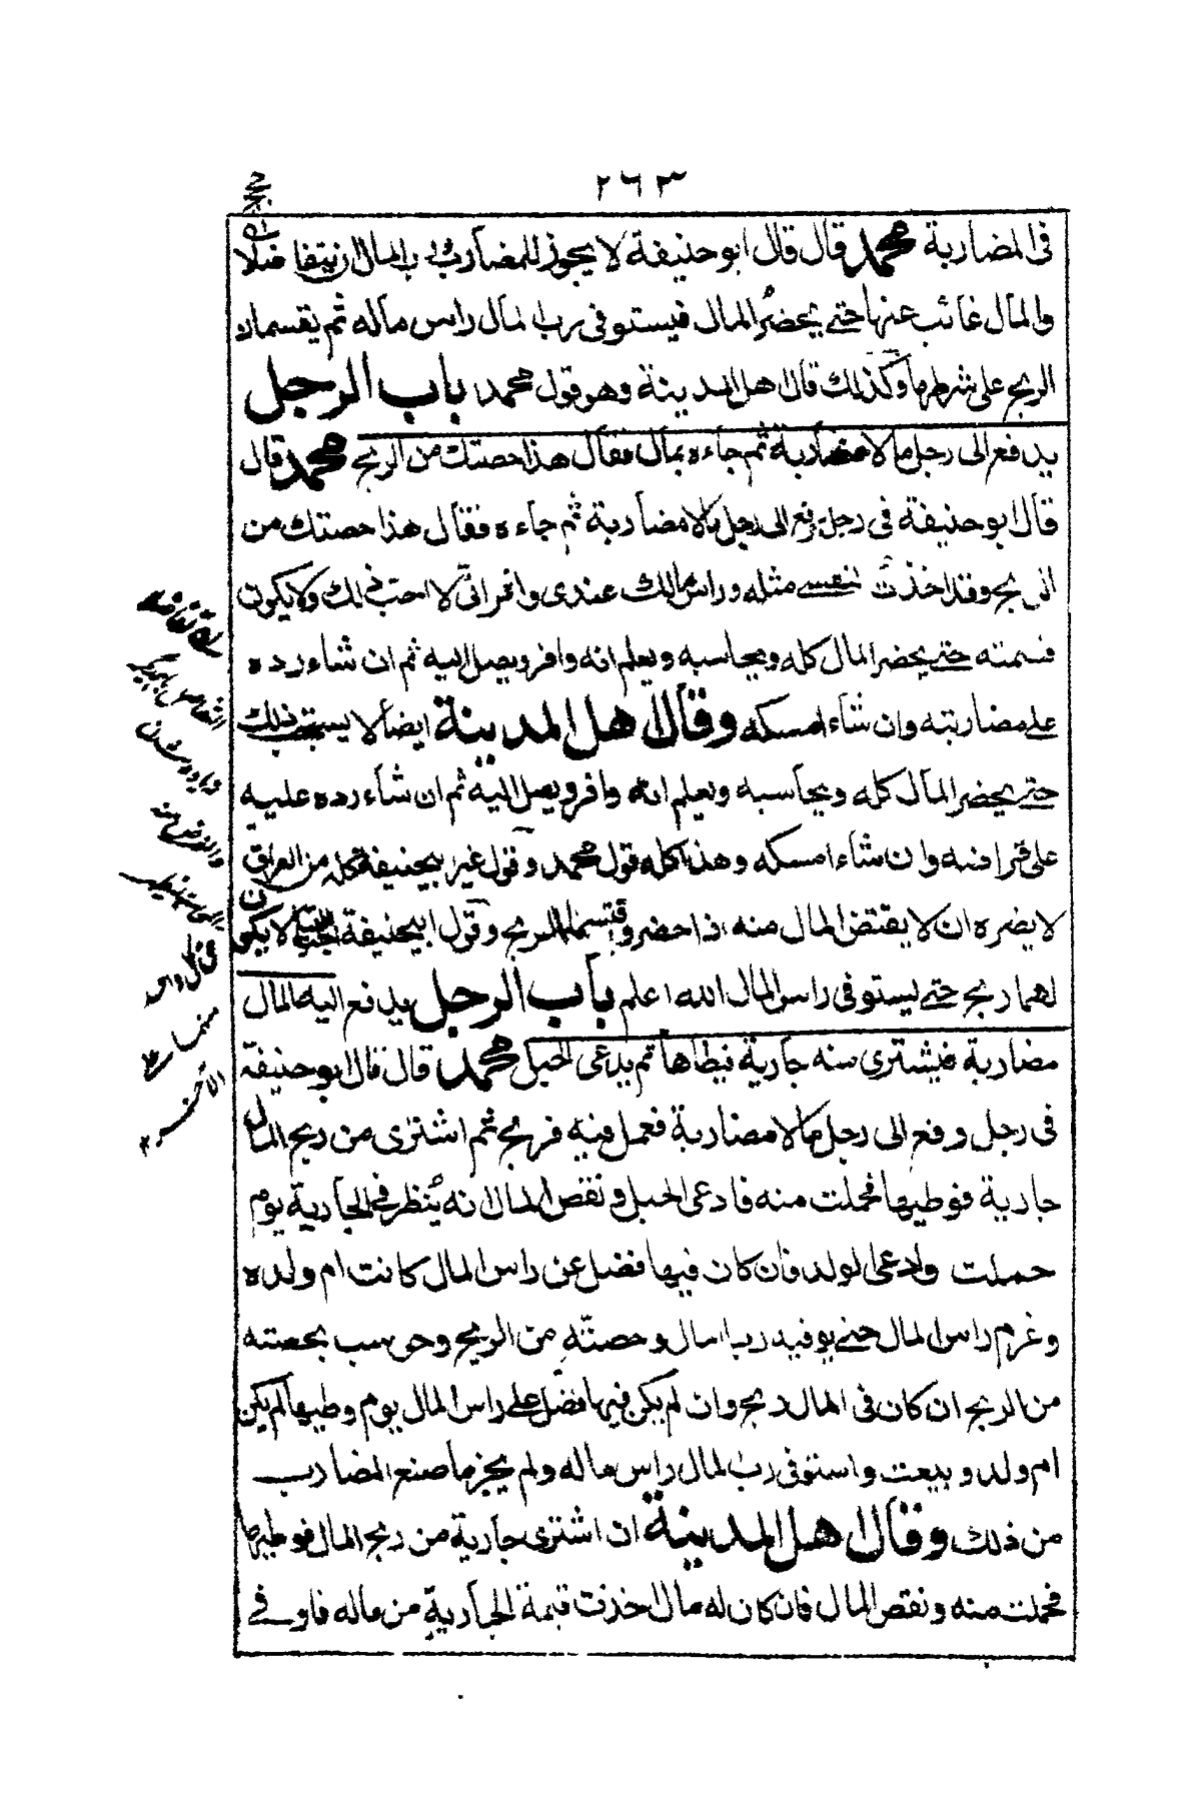 ٢٦٣
فى المضاربة محمد قال قال ابو حنيفة لا يجوز للمضارب ولرب المال ان يتفاضلا
والمال غائب عنها حتى يحضر المال فيستوفى رب المال راس ماله ثم يقسمان
الربح على شرطهما وكذلك قال اهل المدينة وهو قول محمد باب الرجل
يدفع الى رجل مالا مضاربة ثم جاءه بمال فقال هذا حصتك من الربح محمد قال
قال ابو حنيفة فى رجل دفع الى رجل مالا مضاربة ثم جاءه فقال هذا حصتك من
الربح وقد اخذت لنفسى مثله وراس مالك عندى وافر انى لا احب ذلك ولا يكون
قسمته حتى يحضر المال كله ويحاسبه ويعلم انه وافر ويصل اليه ثم ان شاء رده
على مضاربته وان شاء امسكه وقال اهل المدينة ايضا لا يستحب ذلك
حتى يحضر المال كله ويحاسبه ويعلم انه وافر ويصل اليه ثم ان شاء رده عليه
على قراضه وان شاء امسكه وهذا كله قول محمد وقول غير ابيحنيفة كله من العراق
لا يضره ان لا يقتض المال منه اذا حضر واقتسما الربح وقول ابيحنيفة لا يكون
لهما ربح حتى يستوفى راس المال الله اعلم باب الرجل يدفع اليه المال
مضاربة فيشترى منه جارية فيطاها ثم يدعى الحبل محمد قال قال ابو حنيفة
فى رجل دفع الى رجل مالا مضاربة فعمل فيه فربح ثم اشترى من ربح المال
جارية فوطيها فحملت منه فادعى الحبل ونقص المال انه يُنظر فى الجارية يوم
حملت وادعى الولد فان كان فيها فضل عن راس المال كانت ام ولده
وغرم راس المال حتى يوفيه رب المال وحصته من الربح وحوسب بحصته
من الربح ان كان فى المال ربح وان لم يكن فيها فضل على راس المال يوم وطيها لم يكن
ام ولد وبيعت واستوفى رب المال راس ماله ولم يجز ما صنع المضارب
من ذلك وقال اهل المدينة ان اشترى جارية من ربح المال فوطيها
فحملت منه ونقص المال فان كان له مال اخذت قيمة الجارية من ماله فاوفى